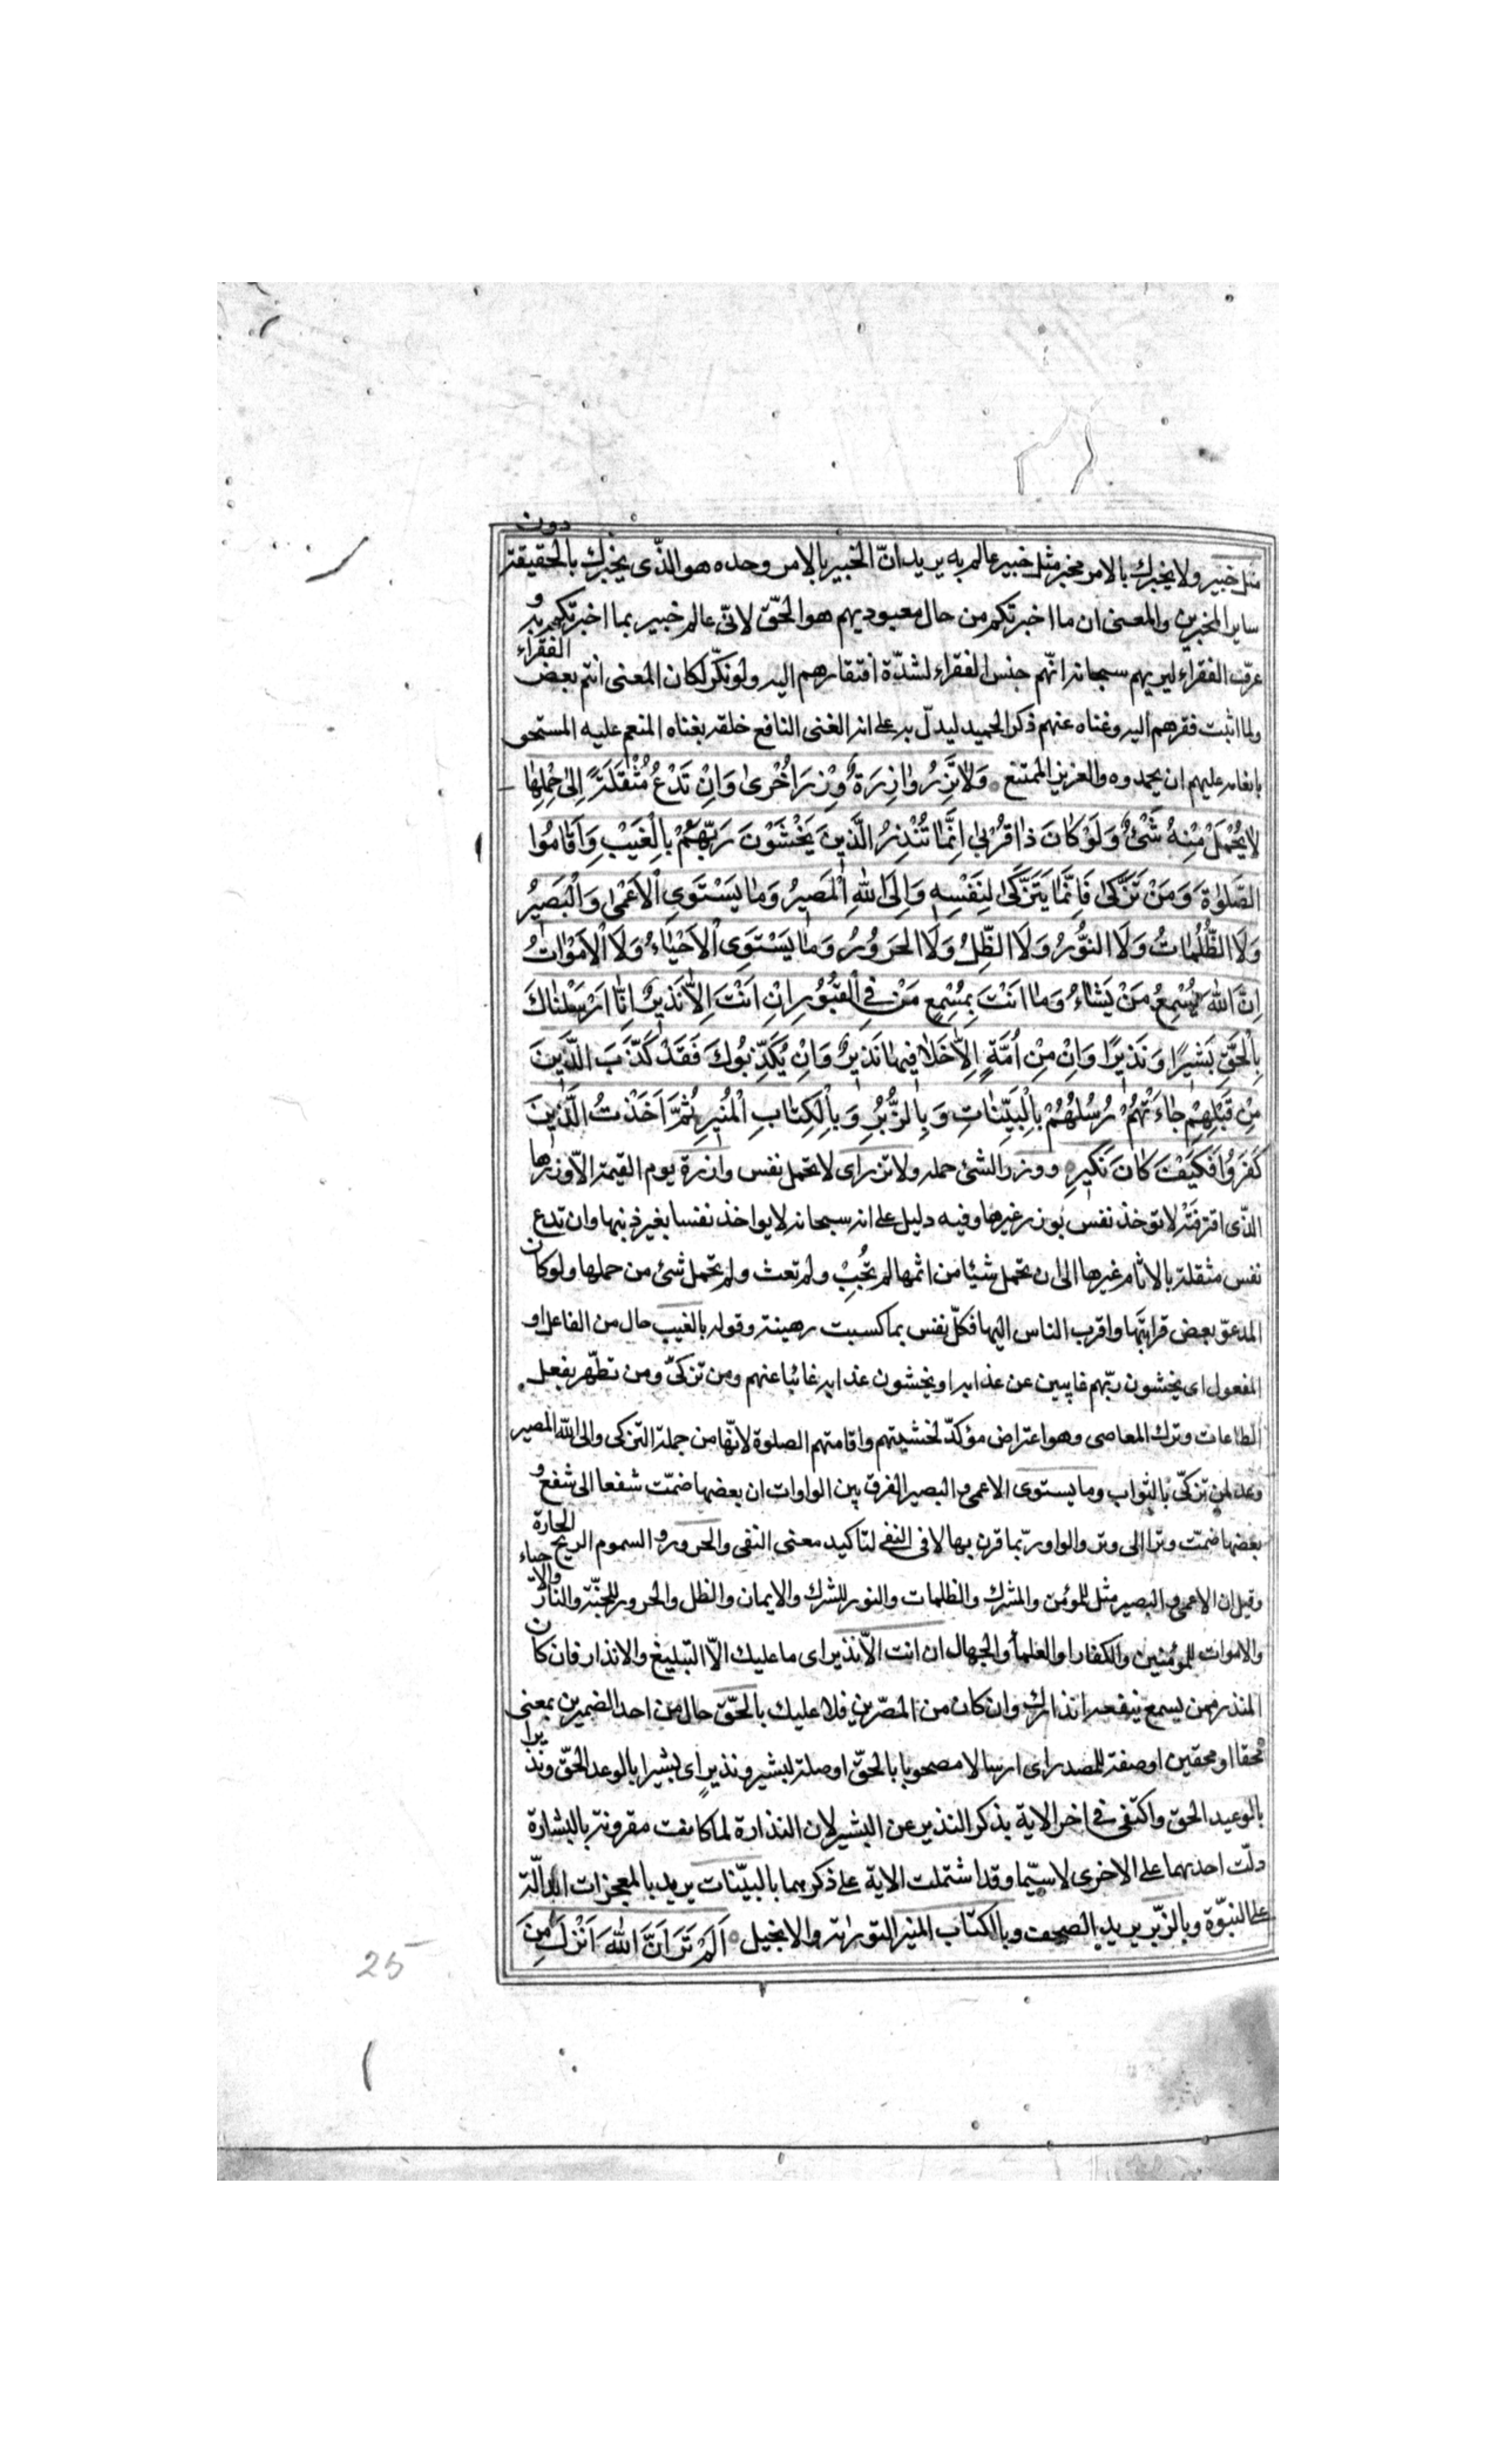 مثل خبير ولا يخبرك بالامر مخبر مثل خبير عالم به يريد انّ الخبير بالامر وحده هو الذّى يخبرك بالحقيقة دون
ساير المخبرين والمعنى ان ما اخبرتكم من حال معبوديهم هو الحّق لانّى عالم خبير بما اخبرتكم به و
عرّف الفقراء ليريهم سبحانه انّهم جنس الفقراء لشدّة افتقارهم اليه ولو نكّر لكان المعنى انتم بعض الفقراء
ولما اثبت فقرهم اليه وغناه عنهم ذكر الحميد ليدلّ به على انه الغنى النافع خلقه بغناه المنعم عليه المستحق
بانعامه عليهم ان يحمدوه والعزيز الممتنع وَلاٰ تَزِرُ وٰازِرَةٌ وِزْرَ اُخْرىٰ وَاِنْ تَدْعُ مُثْقَلَةٌ اِلىٰ حِمْلِهٰا
لاٰ يُحْمَلْ مِنْهُ شَىْءٌ وَلَوْ كٰانَ ذٰا قُرْبىٰ اِنَّمٰا تُنْذِرُ الَّذينَ يَخْشَوْنَ رَبَّهُمْ بِالْغَيْبِ وَاَقٰامُوا
الصَّلوٰةَ وَمَنْ تَزَكّىٰ فَاِنَّمٰا يَتَزَكّىٰ لِنَفْسِهِ وَاِلَى اللهِ الْمَصيرُ وَمٰا يَسْتَوِى الْاَعْمىٰ وَالْبَصيرُ
وَلَا الظُّلُمٰاتُ وَلَا النُّورُ وَلَا الظِّلُّ وَلَا الْحَرُورُ وَمٰا يَسْتَوِى الْاَحْيٰاءُ وَلَا الْاَمْوٰاتُ
اِنَّ اللهَ يُسْمِعُ مَنْ يَشٰاءُ وَمٰا اَنْتَ بِمُسْمِعٍ مَنْ فِى الْقُبُورِ اِنْ اَنْتَ اِلّاٰ نَذيرٌ اِنّٰا اَرْسَلْنٰاكَ
بِالْحَقِّ بَشيرًا وَنَذيرًا وَاِنْ مِنْ اُمَّةٍ اِلّاٰ خَلاٰ فيهٰا نَذيرٌ وَاِنْ يُكَذِّبُوكَ فَقَدْ كَذَّبَ الَّذينَ
مِنْ قَبْلِهِمْ جٰاءَتْهُمْ رُسُلُهُمْ بِالْبَيِّنٰاتِ وَبِالزُّبُرِ وَبِالْكِتٰابِ الْمُنيرِ ثُمَّ اَخَذْتُ الَّذينَ
كَفَرُوا فَكَيْفَ كٰانَ نَكيرِ ووزر الشئ حمله ولا تزر اى لا تحمل نفس وازرة يوم القيمة الّا وزرها
الذّى اقترفَتْه لا تؤخذ نفس بوزر غيرها وفيه دليل على انه سبحانه لا يواخذ نفسا بغير ذنبها وان تدع
نفس مثقلة بالاثام غيرها الى ان تحمل شيئا من اثمها لم تُجَبْ ولم تعث ولم تحمل شئ من حملها ولو كان
المدعوّ بعض قرابتها واقرب الناس اليها فكلّ نفس بما كسبت رهينة وقوله بالغيب حال من الفاعل او
المفعول اى يخشون ربّهم غايبين عن عذابه او يخشون عذابه غائبا عنهم ومن تزكىّ ومن تطهّر بفعل
الطاعات وترك المعاصى وهو اعتراض مؤكدّ لخشيتهم واقامتهم الصلوة لانّها من جملة التزكى والى الله المصير
وعد لمن تزكّى بالثواب وما يستوى الاعمى والبصير الفرق بين الواوات ان بعضها ضمّت شفعا الى شفع و
بعضها ضمّت وترا الى وتر والواو ربّما قرن بها لا فى النفى لتاكيد معنى النفى والحرور و السموم الريح الحارة
وقيل ان الاعمى والبصير مثل للمؤمن والمشرك والظلمات والنور للشرك والايمان والظل والحرور للجنّة والنار والاحياء
والاموات للمؤمنين والكفار او العلماء والجهال ان انت الّا نذير اى ما عليك الّا التبليغ والانذار فان كان
المنذر ممن يسمع ينفعه انذارك وان كان من المصّرين فلا عليك بالحّق حال من احد الضميرين بمعنى
محقا او محقين او صفة للمصدر اى ارسالا مصحوبا بالحقّ او صلة لبشير ونذير اى بشيرا بالوعد الحّق ونذيرا
بالوعيد الحق واكتفى فى اخر الاية بذكر النذير عن البشير لان النذارة لما كانت مقرونة بالبشارة
دلّت احديهما على الاخرى لا سيّما وقد اشتملت الاية على ذكرهما بالبيّنات يريد بالمعجزات الدالّة
على النبوّة وبالزّبر يريد الصحف وبالكتاب المنير التورٰية والانجيل اَلَمْ تَرَ اَنَّ اللهَ اَنْزَلَ مِنَ
25